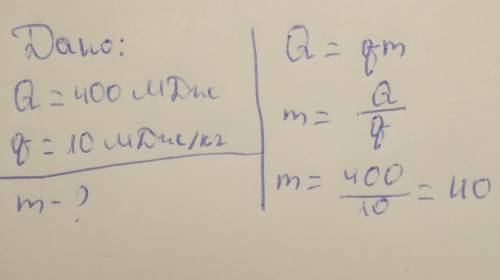 Дано:
Q = 400 МДж
q = 10 МДж/кг
m - ?
Q = qm
m = Q/q
m = 400/10 = 40